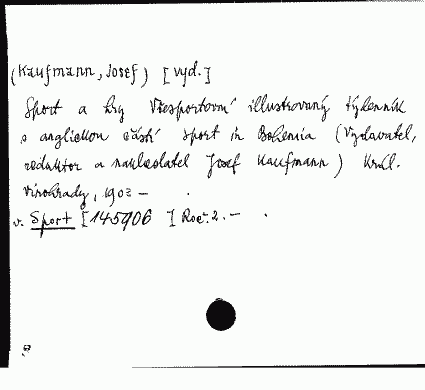 (Kaufmann, Josef) [vyd.]
Sport a hry Všesportovní illustrovaný týdenník
s anglickou částí Sport in Bohemia (Vydavatel,
redaktor a nakladatel Josef Kaufmann) Král.
Vinohrady, 1903 –
v. Sport [145906 ] Roč. 2. –